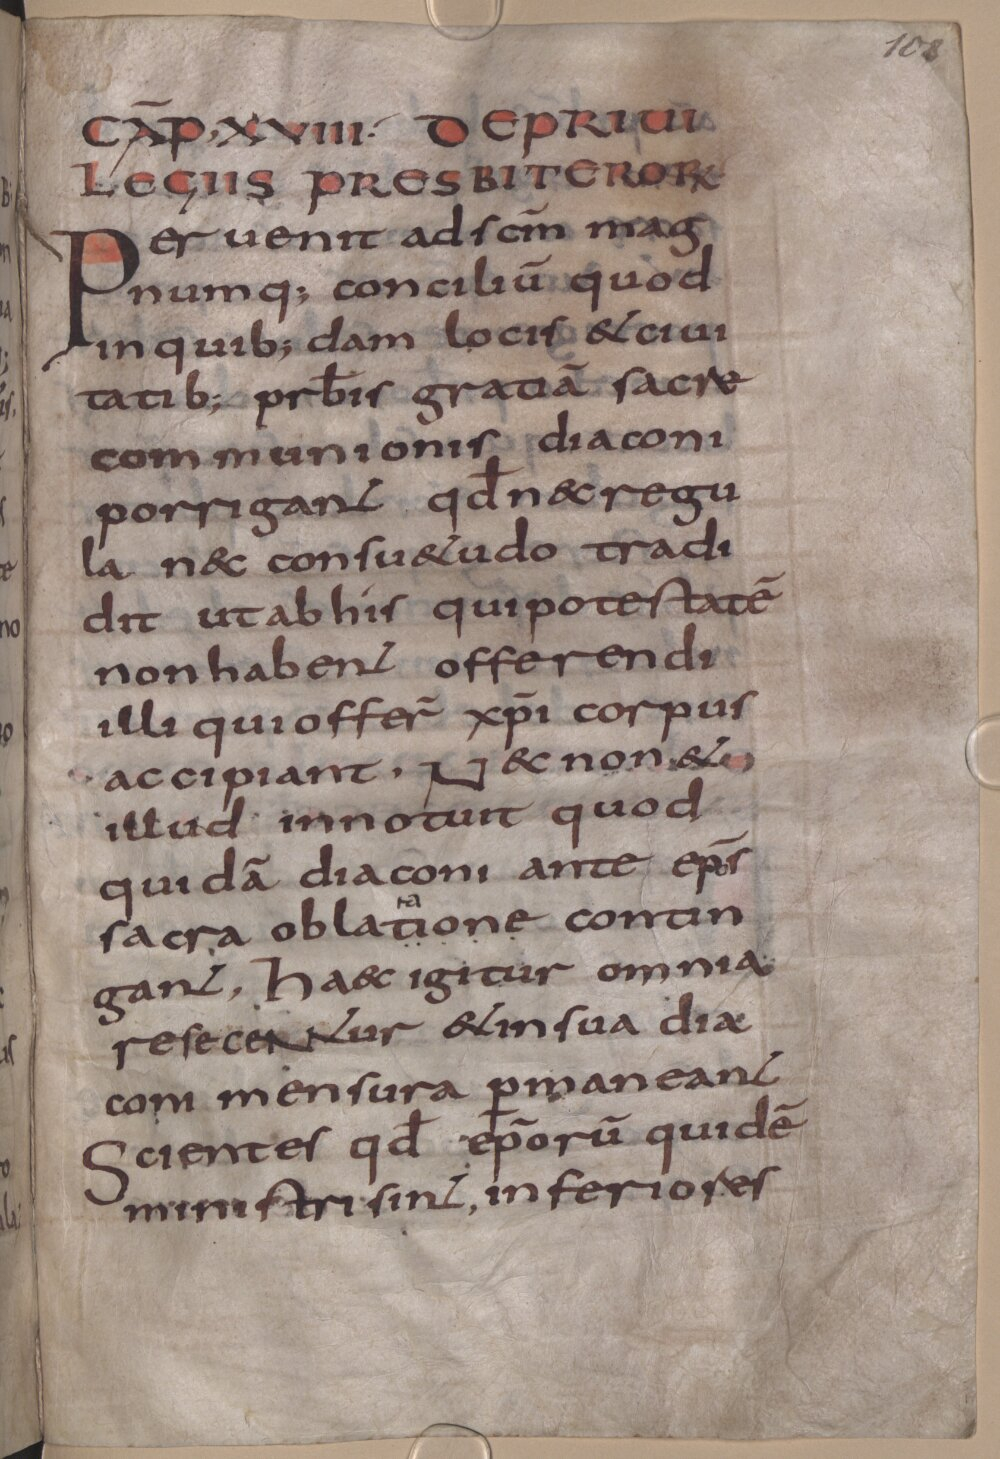 108
CAP̄·XXVIII· DEPRIUI
LEGIIS PRESBITERORꝜ
Peruenit adscm̄ mag
numq; conciliū quod
inquib; dam locis &ciui
tatib; prb̄is gratiā sacre
communionis diaconi
porrigant qd̄ n&regu
la n& consu&udo tradi
dit utabhis quipotestatē
nonhabent offerendi
illi quioffer̄ xp̄i corpus
accipiant. U&non&
illud innotuit quod
quidā diaconi ante ep̄s
sacra oblatione contin
gant, ha&igitur omnia
resecentur &insua dia
coni mensura ꝑmaneant
Scientes qd̄ ep̄orū quidē
ministri sint, inferiores